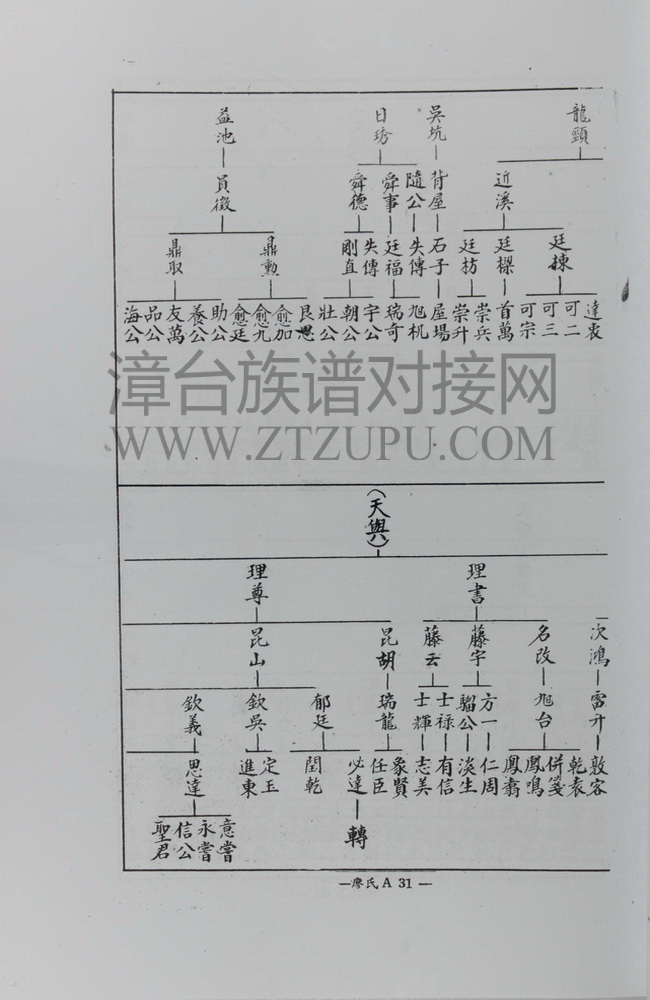 龍頸
吳坑
日琇
益池
近溪
背屋
隨公
舜事
舜德
員徵
廷棟
廷樑
廷枋
石子
失傳
廷福
失傳
剛直
鼎勲
鼎取
達衷
可二
可三
可宗
首萬
崇兵
崇升
屋場
旭机
瑞奇
宇公
朝公
壯公
良思
愈加
愈九
愈廷
助公
養公
友萬
品公
海公
漳台族谱对接网
WWW.ZTZUPU.COM
（天與）
理書
理尊
次鴻
名改
藤宇
藤云
昆胡
昆山
雷升
旭台
方一
騮公
士祿
士輝
瑞龍
郁廷
欽吳
欽義
敦客
乾衷
併箋
鳳鳴
鳳翥
仁周
淡生
有信
志美
象賢
任臣
必達
閏乾
定玉
進東
思達
轉
意嘗
永嘗
信公
聖君
—廖氏 A 31 —